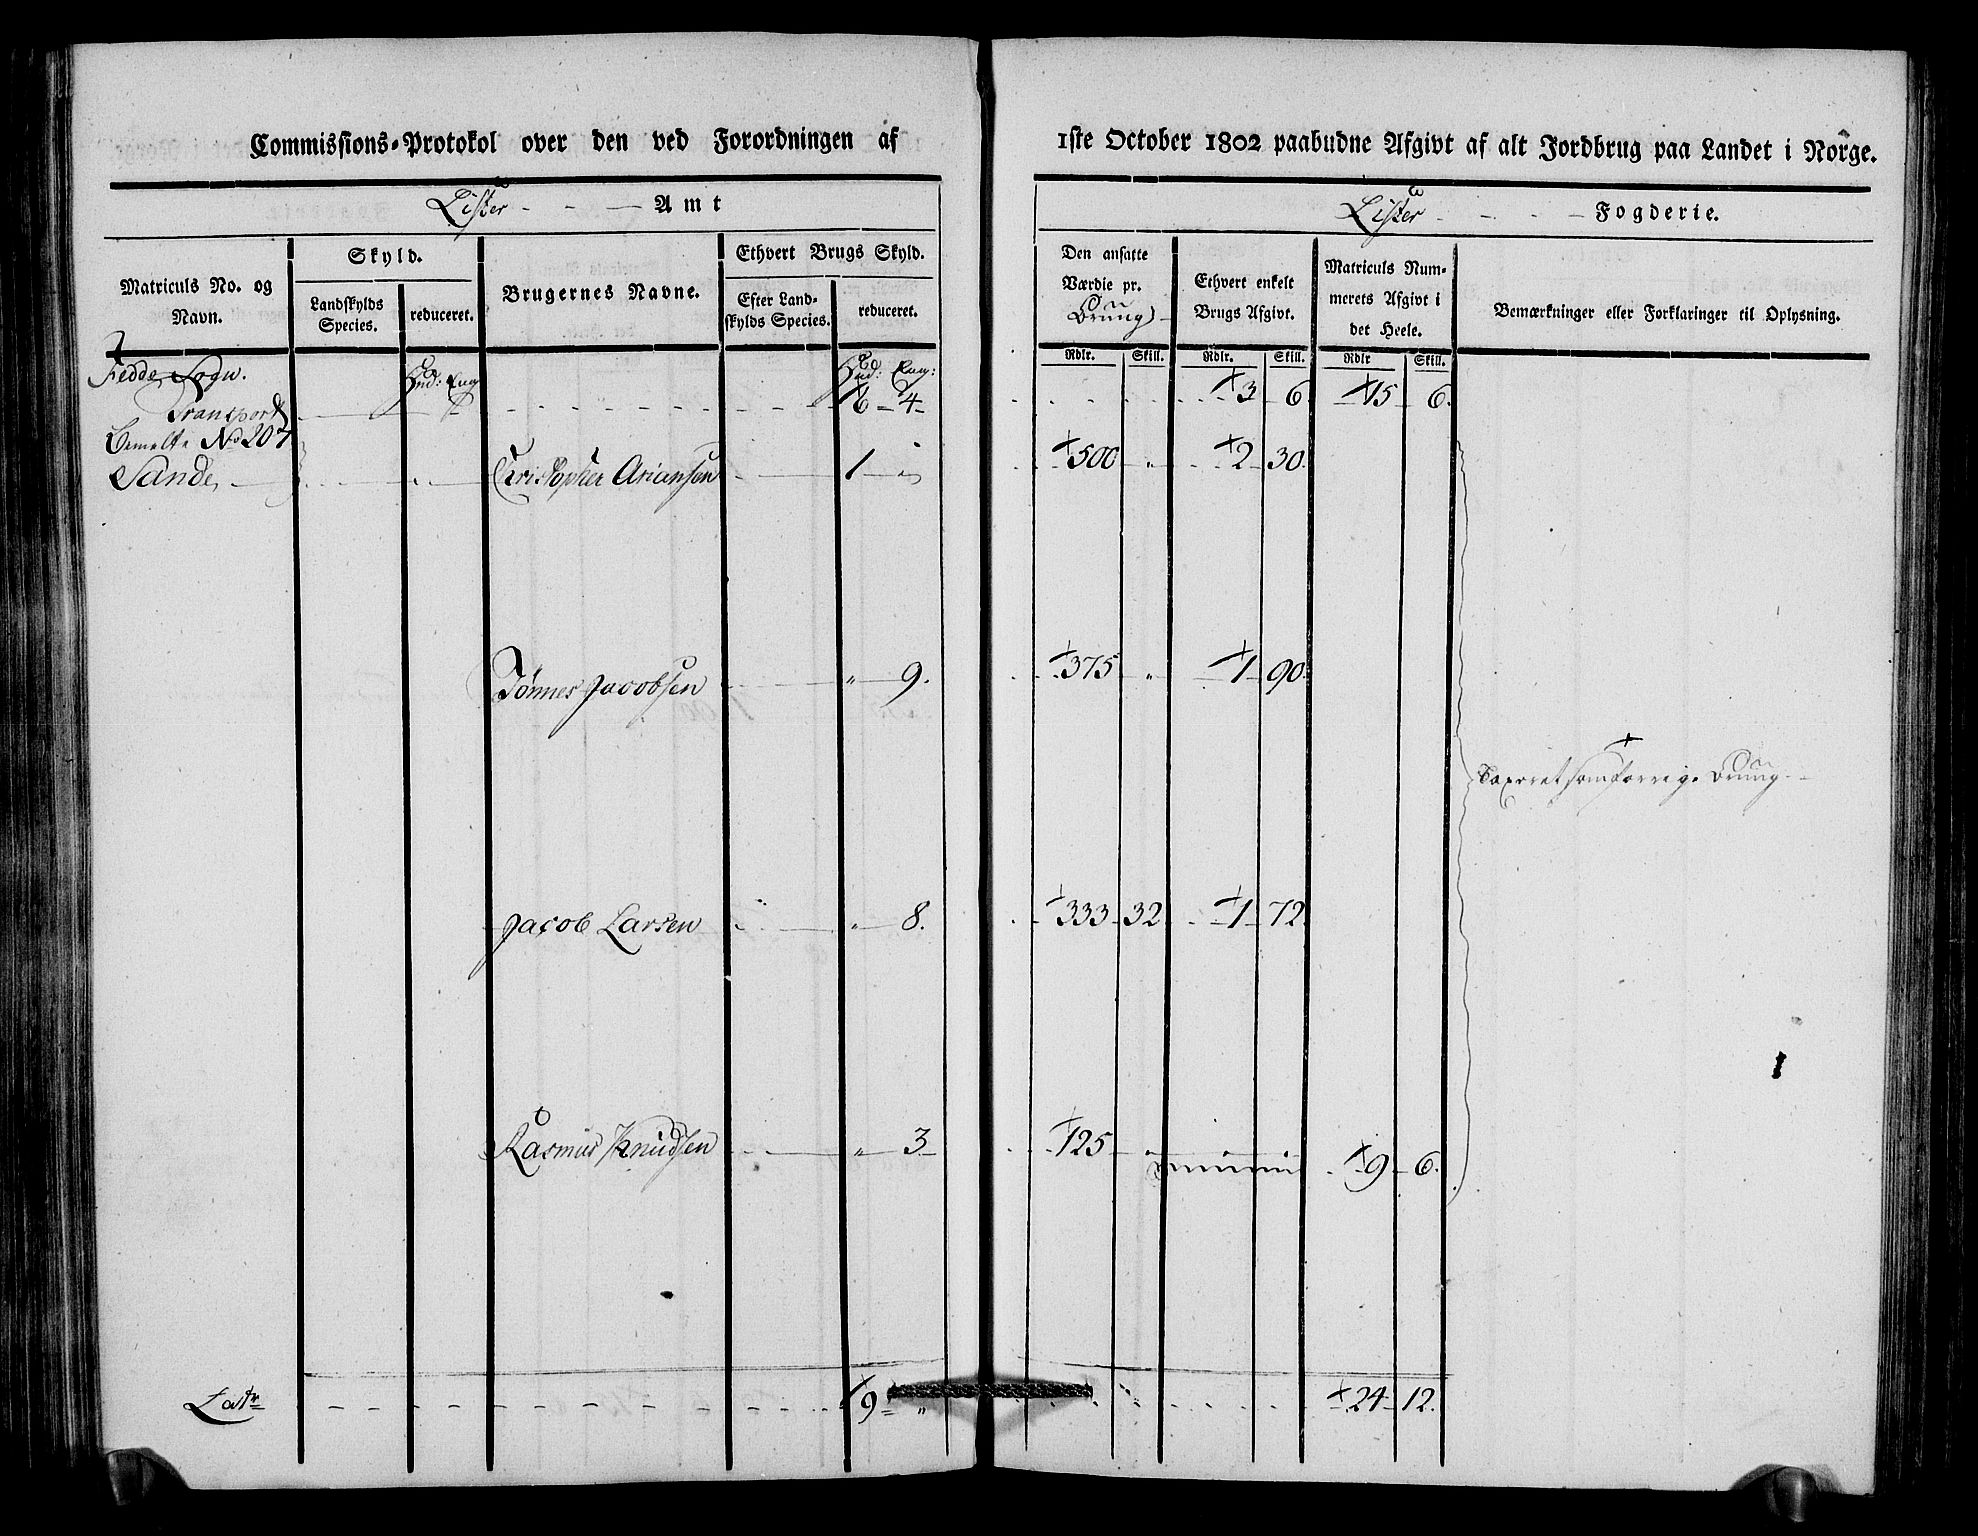 Commissions-Protokol over den ved Forordningen af
1ste October 1802 paabudne Afgivt af alt Jordbrug paa Landet i Norge.
Lister Amt
Lister Fogderie.
Matriculs No. og Navn.
Skyld.
Landskylds Species.
reduceret.
Brugernes Navne.
Ethvert Brugs Skyld.
Efter Landskylds Species.
reduceret.
Den ansatte Værdie pr. Brug
Ethvert enkelt Brugs Afgivt.
Matriculs Nummerets Afgivt i det Heele.
Bemærkninger eller Forklaringer til Oplysning.
Rdlr. Skill. Rdlr. Skill. Rdlr Skill.
Fedde Sogn. Hud: Eng Hud: Eng:
Transport 6 4 3 6 15 6.
Bemelte No 207
Sande Christopher Ariansen 1 " 500 " 2 30.
Tønnes Jacobsen " 9. 375 " 1 90.
Taxeret som forrige Brug
Jacob Larsen " 8. 333 32 1 72.
Rasmus Knudsen " 3 125 " 9 6.
Latr 9 " 24 12.